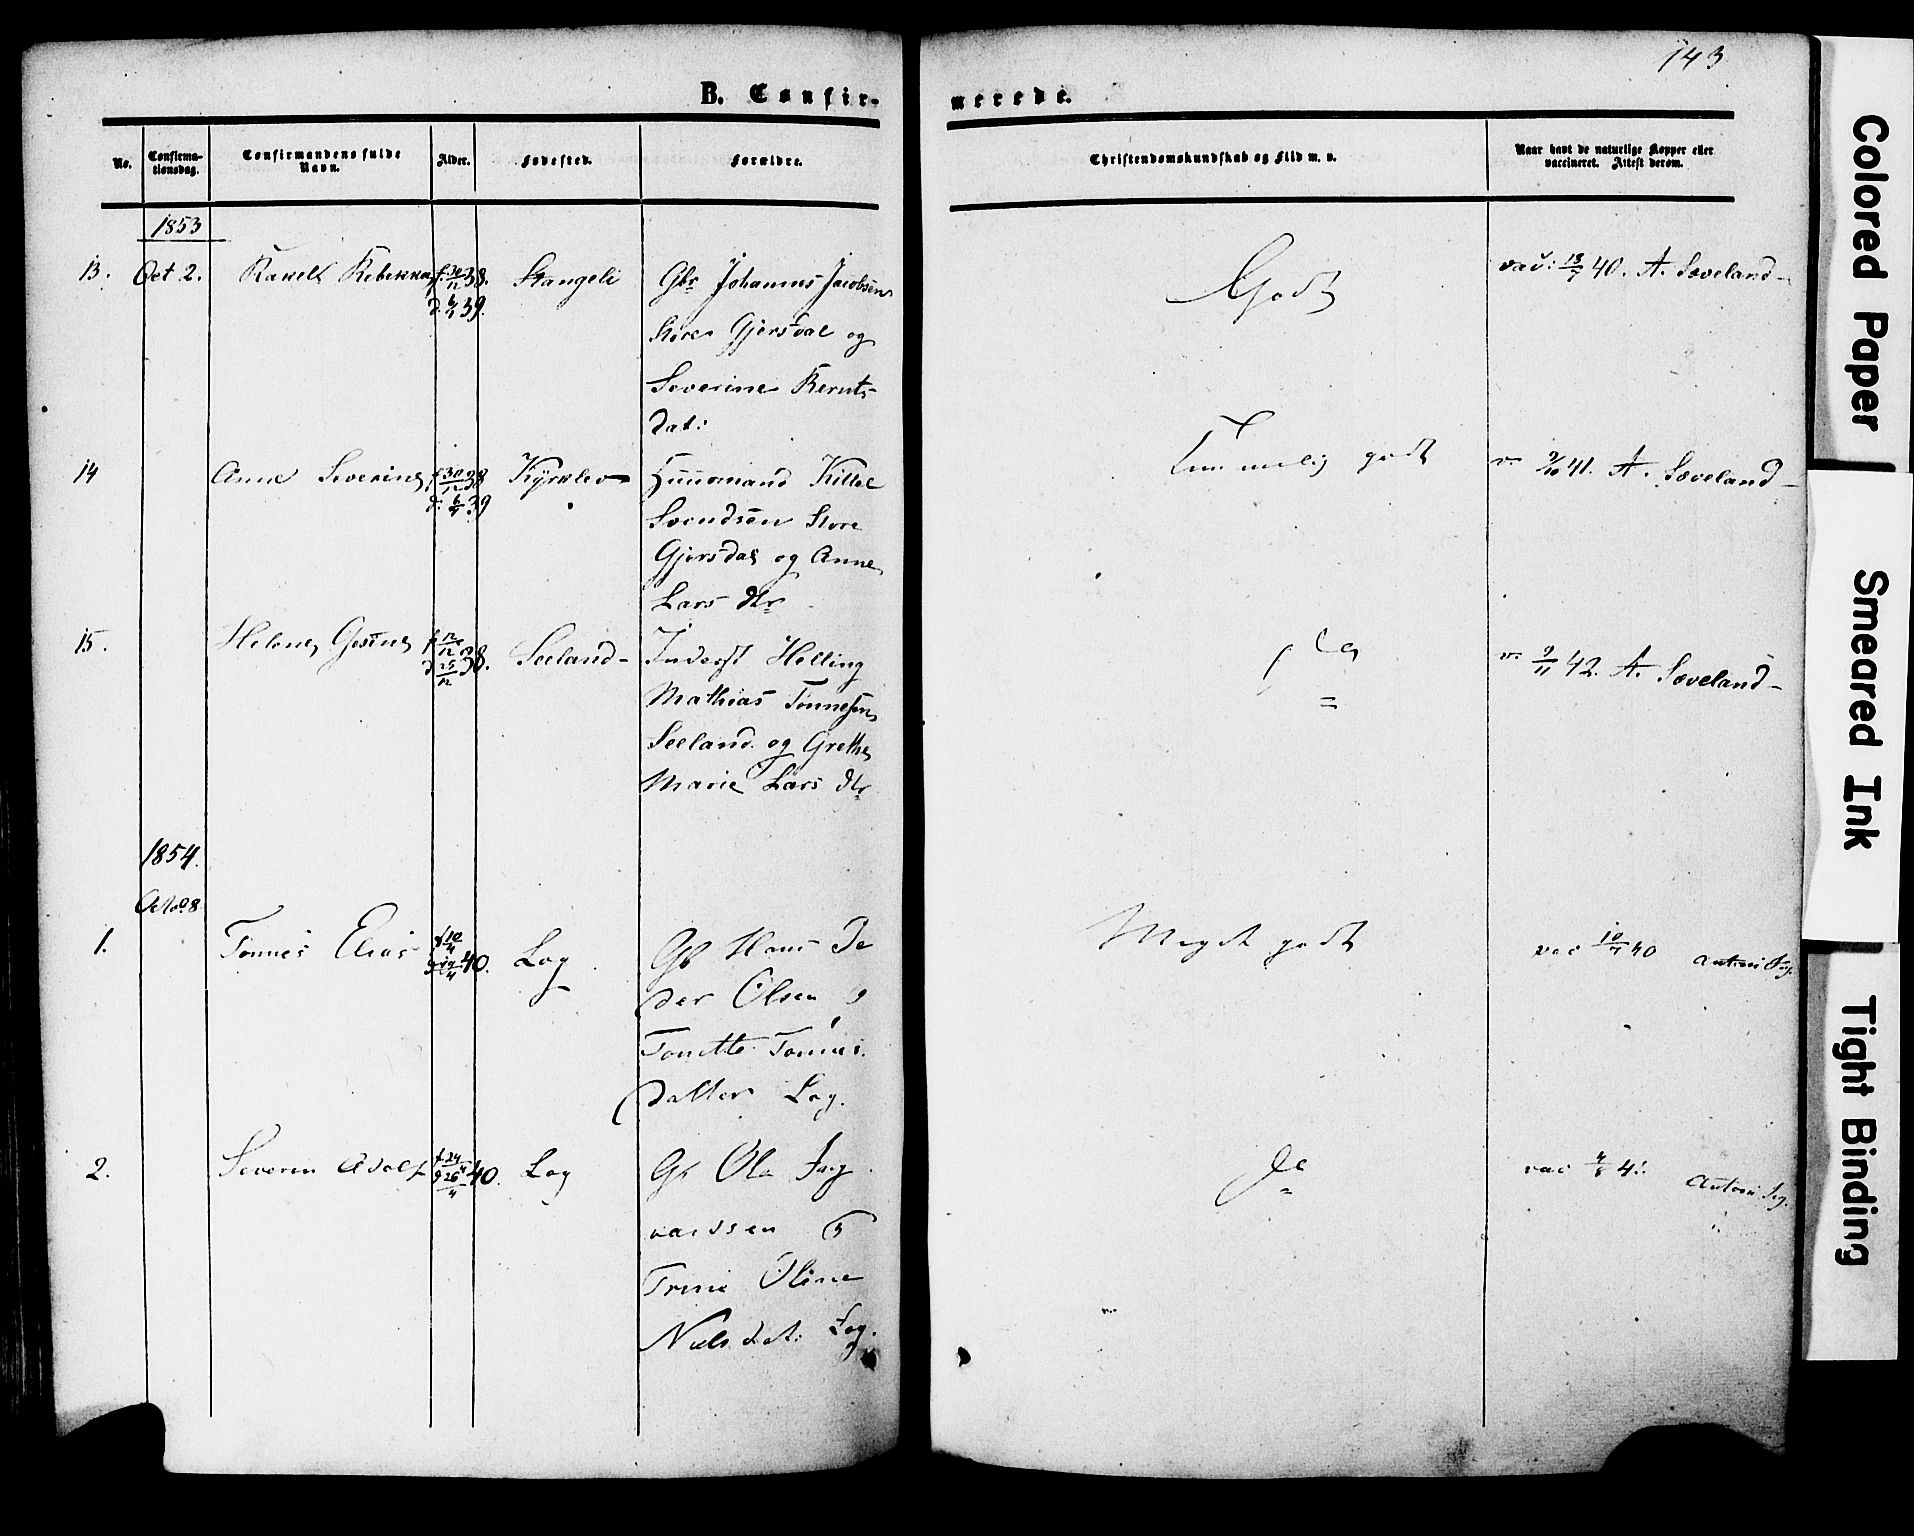 143
B. Confir-
merede.
No.
Confirma-
tionsdag.
Confirmandens fulde
Navn.
Alder.
Fødested.
Forældre.
Christendomskundskab og Flid m. v.
Naar havt de naturlige Kopper eller
vaccineret. Attest derom.
1853
13. Oct 2. Rakell Rebekka f. 30/12 38. Stangeli Gbr Johannes Jacobsen
d. 6/1 39.
Store Gjersdal og
Severine Bernts-
dat:
Godt
vac: 13/7 40. A. Søveland-
14 Anne Severine f 30/12 38 Kyrklev Huusmand Kittel
d. 6/1 39
Svendsen Store
Gjersdal og Anne
Lars dtr
Temmelig godt
v. 9/10 41. A. Søveland-
15. Helene Gesine f 12/12 Seeland- Inderst Helling
d 25/12 38.
Mathias Tønnesen
Seeland og Grethe
Marie Lars dtr
v. 9/11 42. A. Søveland-
1854.
Octo 8
1. Tønnes Elias f 10/4 40. Log Gb Hans Pe
der Olsen og
Tonette Tønnes
datter Log.
Meget godt
vac 10/7 40
2. Severin Adolf f 24/4 40. Log Gb Ola
vardsen
Trine Oline
Niels dat: Log.
vac
Colored Paper
Smeared Ink
Tight Binding